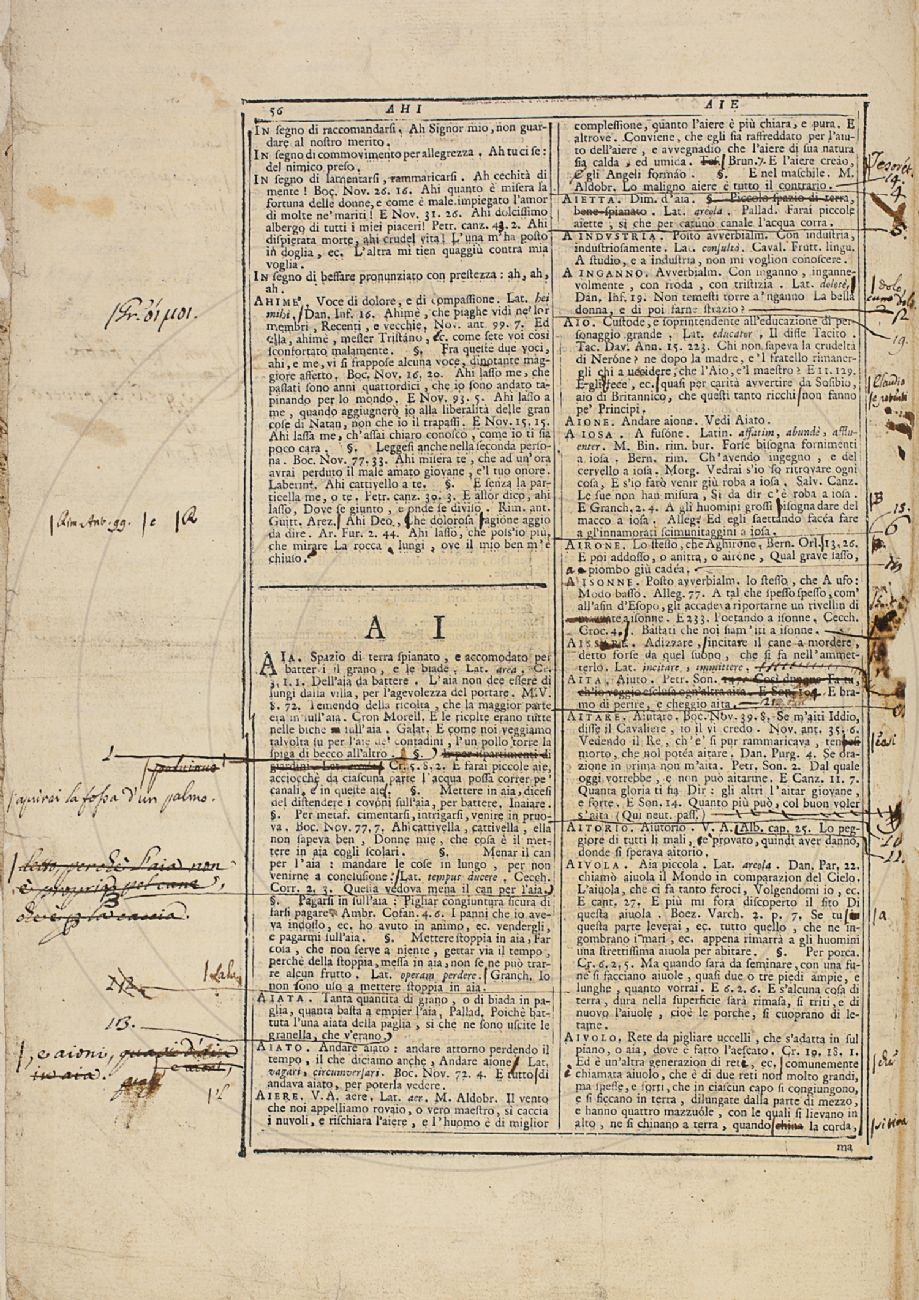 56
AHI
AIE
IN segno di raccomandarsi. Ah Signor mio, non guar-
dare al nostro merito.
IN segno di commovimento per allegrezza. Ah tu ci se:
del nimico preso.
IN segno di lamentarsi, rammaricarsi. Ah cechità di
mente! Boc. Nov. 26. 16. Ahi quanto è misera la
fortuna delle donne, e come è male impiegato l'amor
di molte ne' mariti! E Nov. 31. 26. Ahi dolcissimo
albergo di tutti i miei piaceri! Petr. canz. 43. 2. Ahi
dispietata morte, ahi crudel vita! L'una m'ha posto
in doglia, ec. L'altra mi tien quaggiù contra mia
voglia.
IN segno di beffare pronunziato con prestezza: ah, ah,
ah.
AHIME', Voce di dolore, e di compassione. Lat. hei
mihi. Dan. Inf. 16. Ahimè, che piaghe vidi ne' lor
membri, Recenti, e vecchie, Nov. ant. 99. 7. Ed
ella, ahimè, messer Tristano, ec. come sete voi così
sconfortato malamente. §. Fra queste due voci,
ahi, e me, vi si frappose alcuna voce, dinotante mag-
giore affetto. Boc. Nov. 16. 20. Ahi lasso me, che
passati sono anni quattordici, che io sono andato ta-
pinando per lo mondo. E Nov. 93. 5. Ahi lasso a
me, quando aggiugnerò io alla liberalità delle gran
cose di Natan, non che io il trapassi. E Nov. 15. 15.
Ahi lassa me, ch'assai chiaro conosco, come io ti sia
poco cara. §. Leggesi anche nella seconda perso-
na. Boc. Nov. 77. 33. Ahi misera te, che ad un'ora
avrai perduto il male amato giovane, e'l tuo onore.
Laberint. Ahi cattivello a te. §. E senza la par-
ticella me, o te. Petr. canz. 39. 3. E allor dico, ahi
lasso, Dove se giunto, e onde se diviso. Rim. ant.
Guitt. Arez. Ahi Deo, Che dolorosa ragione aggio
da dire. Ar. Fur. 2. 44. Ahi lasso, che poss'io più,
che mirare La rocca lungi, ove il mio ben m'è
chiuso.
A I
AIA. Spazio di terra spianato, e accomodato per
batter i il grano, e le biade. Lat. area. Cr.
3. 1. 1. Dell'aia da battere. L'aia non dee essere di
lungi dalla villa, per l'agevolezza del portare. M. V.
8. 72. Temendo della ricolta, che la maggior parte
era in sull'aia. Cron Morell. E le ricolte erano tutte
nelle biche in sull'aia. Galat. E come noi veggiamo
talvolta su per l'aie de' contadini, l'un pollo torre la
spiga di becco all'altro. §.
Cr. 5. 8. 2. E farai piccole aie,
acciocchè da ciascuna parte l'acqua possa correr pe'
canali, e in queste aie. §. Mettere in aia, dicesi
del distendere i covoni sull'aia, per battere. Inaiare.
§. Per metaf. cimentarsi, intrigarsi, venire in pruo-
va. Boc. Nov. 77. 7. Ahi cattivella, cattivella, ella
non sapeva ben, Donne mie, che cosa è il met-
tere in aia cogli scolari. §. Menar il can
per l'aia: mandare le cose in lungo, per non
venirne a conclusione. Lat. tempus ducere. Cecch.
Corr. 2. 3. Questa vedova mena il can per l'aia.
§. Pagarsi in sull'aia: Pigliar congiuntura sicura di
farsi pagare. Ambr. Cofan. 4. 6. I panni che io ave-
va indosso, ec. ho avuto in animo, ec. vendergli,
e pagarmi sull'aia. §. Mettere stoppia in aia, Far
cosa, che non serve a niente, gettar via il tempo,
perchè della stoppia, messa in aia, non se ne può trar-
re alcun frutto. Lat. operam perdere. Granch. Io
non sono uso a mettere stoppia in aia.
AIATA. Tanta quantità di grano, o di biada in pa-
glia, quanta basta a empier l'aia, Pallad. Poichè bat-
tuta l'una aiata della paglia, sì che ne sono uscite le
granella, che v'erano.
AIATO. Andare aiato: andare attorno perdendo il
tempo, il che diciamo anche, Andare aione. Lat.
vagari, circumversari. Boc. Nov. 72. 4. E tutto dì
andava aiato, per poterla vedere.
AIERE. V. A. aere. Lat. aer. M. Aldobr. Il vento
che noi appelliamo rovaio, o vero maestro, si caccia
i nuvoli, e rischiara l'aiere, e l'huomo è di miglior
complessione, quanto l'aiere è più chiara, e pura. E
altrove. Conviene, che egli sia raffreddato per l'aiu-
to dell'aiere, e avvegnadio che l'aiere di sua natura
sia calda, ed umida. Brun. 7. E l'aiere creao,
E gli Angeli formao. §. E nel maschile. M.
Aldobr. Lo maligno aiere è tutto il contrario.
AIETTA. Dim. d'aia. §. Piccolo spazio di terra,
bene spianato. Lat. areola. Pallad. Farai piccole
aiette, sì che per catuno canale l'acqua corra.
A INDVSTRIA. Posto avverbialm. Con industria,
industriosamente. Lat. consultò. Caval. Frutt. lingu.
A studio, e a industria, non mi voglion conoscere.
A INGANNO. Avverbialm. Con inganno, inganne-
volmente, con froda, con tristizia. Lat. dolosè.
Dan. Inf. 19. Non temesti torre a'nganno La bella
donna, e di poi farne strazio?
AIO. Custode, e soprintendente all'educazione di per-
sonaggio grande. Lat. educator, Il disse Tacito.
Tac. Dav. Ann. 15. 223. Chi non sapeva la crudeltà
di Nerone? ne dopo la madre, e'l fratello rimaner-
gli chi a uccidere, che l'Aio, e'l maestro? E 11. 129.
Egli fece, ec. quasi per carità avvertire da Susibio,
aio di Britannico, che questi tanto ricchi non fanno
pe' Principi.
AIONE. Andare aione. Vedi Aiato.
A IOSA. A fusone. Latin. affatim, abundè, afflu-
enter. M. Bin. rim. bur. Forse bisogna fornimenti
a iosa. Bern. rim. Ch'avendo ingegno, e del
cervello a iosa. Morg. Vedrai s'io so ritrovare ogni
cosa, E s'io farò venir giù roba a iosa. Salv. Canz.
Le sue non han misura, Si da dir c'è roba a iosa.
E Granch. 2. 4. A gli huomini grossi bisogna dare del
macco a iosa. Alleg. Ed egli saettando facea fare
a gl'innamorati scimunitaggini a iosa.
AIRONE. Lo stesso, che Aghirone. Bern. Orl. 13. 26.
E poi addosso, o anitra, o airone, Qual grave sasso,
a piombo giù cadea.
A ISONNE. Posto avverbialm. lo stesso, che A ufo:
Modo basso. Alleg. 77. A tal che spesso spesso, com'
all'asin d'Esopo, gli accadeva riportarne un rivellin di
a isonne. E 233. l'octando a isonne. Cecch.
Croc. 4. Bastati che noi siam' iti a isonne.
Adizzare, incitare il cane a mordere,
detto forse da quel suono, che si fa nell'ammet-
terlo. Lat. incitare, immittere.
AITA, Aiuto. Petr. Son.
ch'io veggio esclusa ogn'altra aita. E Son. 104. E bra-
mo di perire, e cheggio aita.
AITARE. Aiutare. Boc. Nov. 39. 8. Se m'aiti Iddio,
disse il Cavaliere, io il vi credo. Nov. ant. 35. 6.
Vedendo il Re, ch'e' si pur rammaricava,
morto, che nol potea aitare. Dan. Purg. 4. Se ora-
zione in prima non m'aita. Petr. Son. 2. Dal quale
oggi vorrebbe, e non può aitarme. E Canz. 11. 7.
Quanta gloria ti sia Dir: gli altri l'aitar giovane,
e forte. E Son. 14. Quanto più può, col buon voler
s'aita (Qui neut. pass.)
AITORIO. Aiutorio. V. A. Alb. cap. 25. Lo peg-
giore di tutti li mali, se provato, quindi aver danno,
donde si sperava aitorio.
AIVOLA. Aia piccola. Lat. areola. Dan. Par. 22.
chiamò aiuola il Mondo in comparazion del Cielo.
L'aiuola, che ci fa tanto feroci, Volgendomi io, ec.
E cant. 27. E più mi fora discoperto il sito Di
questa aiuola. Boez. Varch. 2. p. 7. Se tu
questa parte leverai, ec. tutto quello, che ne in-
gombrano i mari, ec. appena rimarrà a gli huomini
una strettissima aiuola per abitare. §. Per porca.
Cr. 6. 2. 5. Ma quando sarà da seminare, con una fu-
ne si facciano aiuole, quasi due o tre piedi ampie, e
lunghe, quanto vorrai. E 6. 2. 6. E s'alcuna cosa di
terra, dura nella superficie sarà rimasa, si triti, e di
nuovo l'aiuole, cioè le porche, si cuoprano di le-
tame.
AIVOLO. Rete da pigliare uccelli, che s'adatta in sul
piano, o aia, dove è fatto l'aescato. Cr. 10. 18. 1.
Ed è un'altra generazion di rete, ec. comunemente
chiamata aiuolo, che è di due reti non molto grandi,
ma spesse, e forti, che in ciascun capo si congiungono,
e si ficcano in terra, dilungate dalla parte di mezzo,
e hanno quattro mazzuole, con le quali si lievano in
alto, ne si chinano a terra, quando la corda,
ma
Gr. οἴμοι.
Rim. Ant. 99. | e | R
apirai la fossa d'un palmo.
letto, perchè l'aia non
13.
, e aioni,
in aia.
Tesoret.
14.
4
5.
12
19.
Claudio
18.
6
10
11.
a